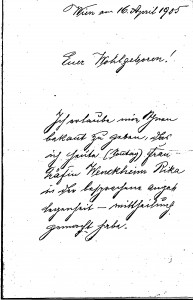 Wien am 16. April 1905
Euer Wohlgeboren!
Ich erlaube mir Ihnen
bekant zu geben, das
ich heute (Sontag) Frau
Gräfin Wenckheim Rika
in der besprochene angele
legenheit – mittheilung
gemacht habe.